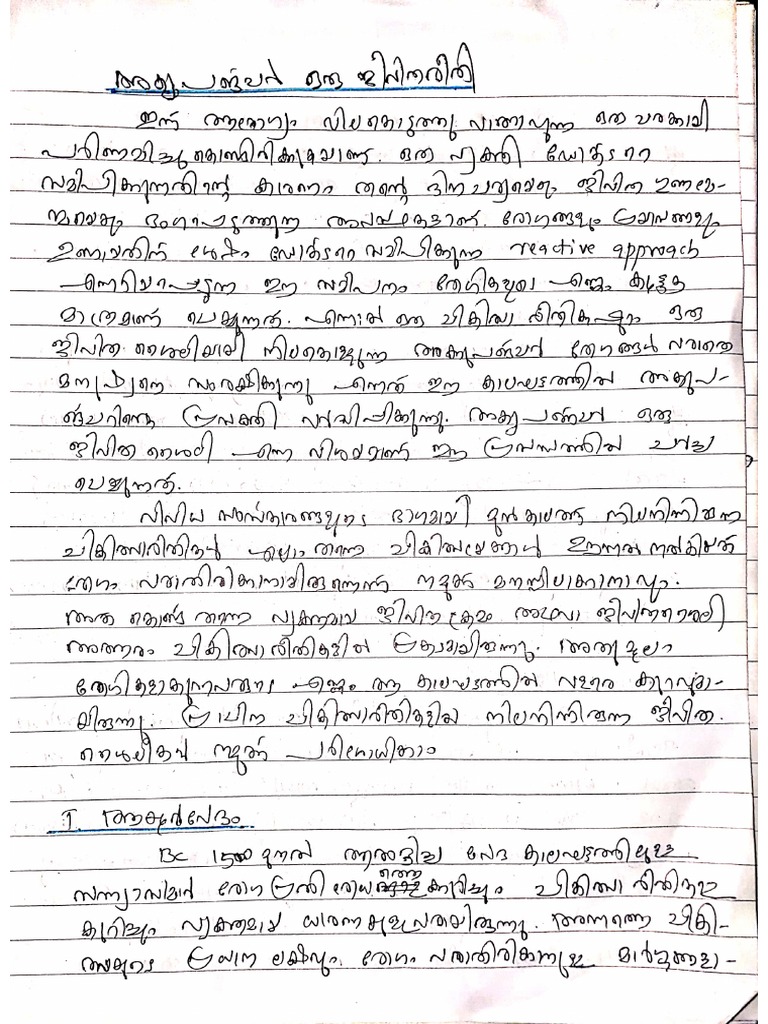 അക്യുപങ്ചർ ഒരു ജീവിതരീതി
ഇന്ന് ആരോഗ്യം വിലകൊടുത്തു വാങ്ങാവുന്ന ഒരു ചരക്കായി
പരിണമിച്ചു കൊണ്ടിരിക്കുകയാണ്. ഒരു വ്യക്തി ഡോക്ടറെ
സമീപിക്കുന്നതിന്റെ കാരണം തന്റെ ദിനചര്യയെയും ജീവിത ഗുണമേ-
ന്മയെയും ഭംഗപ്പെടുത്തുന്ന അവസ്ഥകളാണ്. രോഗങ്ങളും പ്രയാസങ്ങളും
ഉണ്ടായതിന് ശേഷം ഡോക്ടറെ സമീപിക്കുന്ന reactive approach
എന്നറിയപ്പെടുന്ന ഈ സമീപനം രോഗികളുടെ എണ്ണം കൂട്ടുക
മാത്രമാണ് ചെയ്യുന്നത്. എന്നാൽ ഒരു ചികിത്സാ രീതിക്കപ്പുറം ഒരു
ജീവിത ശൈലിയായി നിലകൊള്ളുന്ന അക്യുപങ്ചർ രോഗങ്ങൾ വരാതെ
മനുഷ്യനെ സംരക്ഷിക്കുന്നു എന്നത് ഈ കാലഘട്ടത്തിൽ അക്യുപ-
ങ്ചറിന്റെ പ്രസക്തി വർദ്ധിപ്പിക്കുന്നു. അക്യുപങ്ചർ ഒരു
ജീവിത ശൈലി എന്ന വിഷയമാണ് ഈ പ്രബന്ധത്തിൽ ചർച്ച
ചെയ്യുന്നത്.
വിവിധ സംസ്കാരങ്ങളുടെ ഭാഗമായി മുൻകാലത്ത് നിലനിന്നിരുന്ന
ചികിത്സാരീതികൾ എല്ലാം തന്നെ ചികിത്സയേക്കാൾ ഊന്നൽ നൽകിയത്
രോഗം വരാതിരിക്കാനായിരുന്നെന്ന് നമുക്ക് മനസ്സിലാക്കാനാവും.
അത് കൊണ്ട് തന്നെ വ്യക്തമായ ജീവിത ക്രമം അഥവാ ജീവിതശൈലി
അത്തരം ചികിത്സാ രീതികളിൽ പ്രകടമായിരുന്നു. അതുമൂലം
രോഗികളാകുന്നവരുടെ എണ്ണം ആ കാലഘട്ടത്തിൽ വളരെ കുറവുമാ-
യിരുന്നു. പ്രാചീന ചികിത്സാരീതികളിൽ നിലനിന്നിരുന്ന ജീവിത
ശൈലികൾ നമുക്ക് പരിശോധിക്കാം
I. ആയുർവേദം
BC 1500 മുതൽ ആരംഭിച്ച വേദ കാലഘട്ടത്തിലുള്ള
സന്ന്യാസിമാർ രോഗ പ്രതിരോധത്തെ കുറിച്ചും ചികിത്സാ രീതികളെ
കുറിച്ചും വ്യക്തമായ ധാരണകളുള്ളവരായിരുന്നു. അന്നത്തെ ചികി-
ത്സയുടെ പ്രധാന ലക്ഷ്യം രോഗം വരാതിരിക്കാനുള്ള മാർഗ്ഗങ്ങളാ-